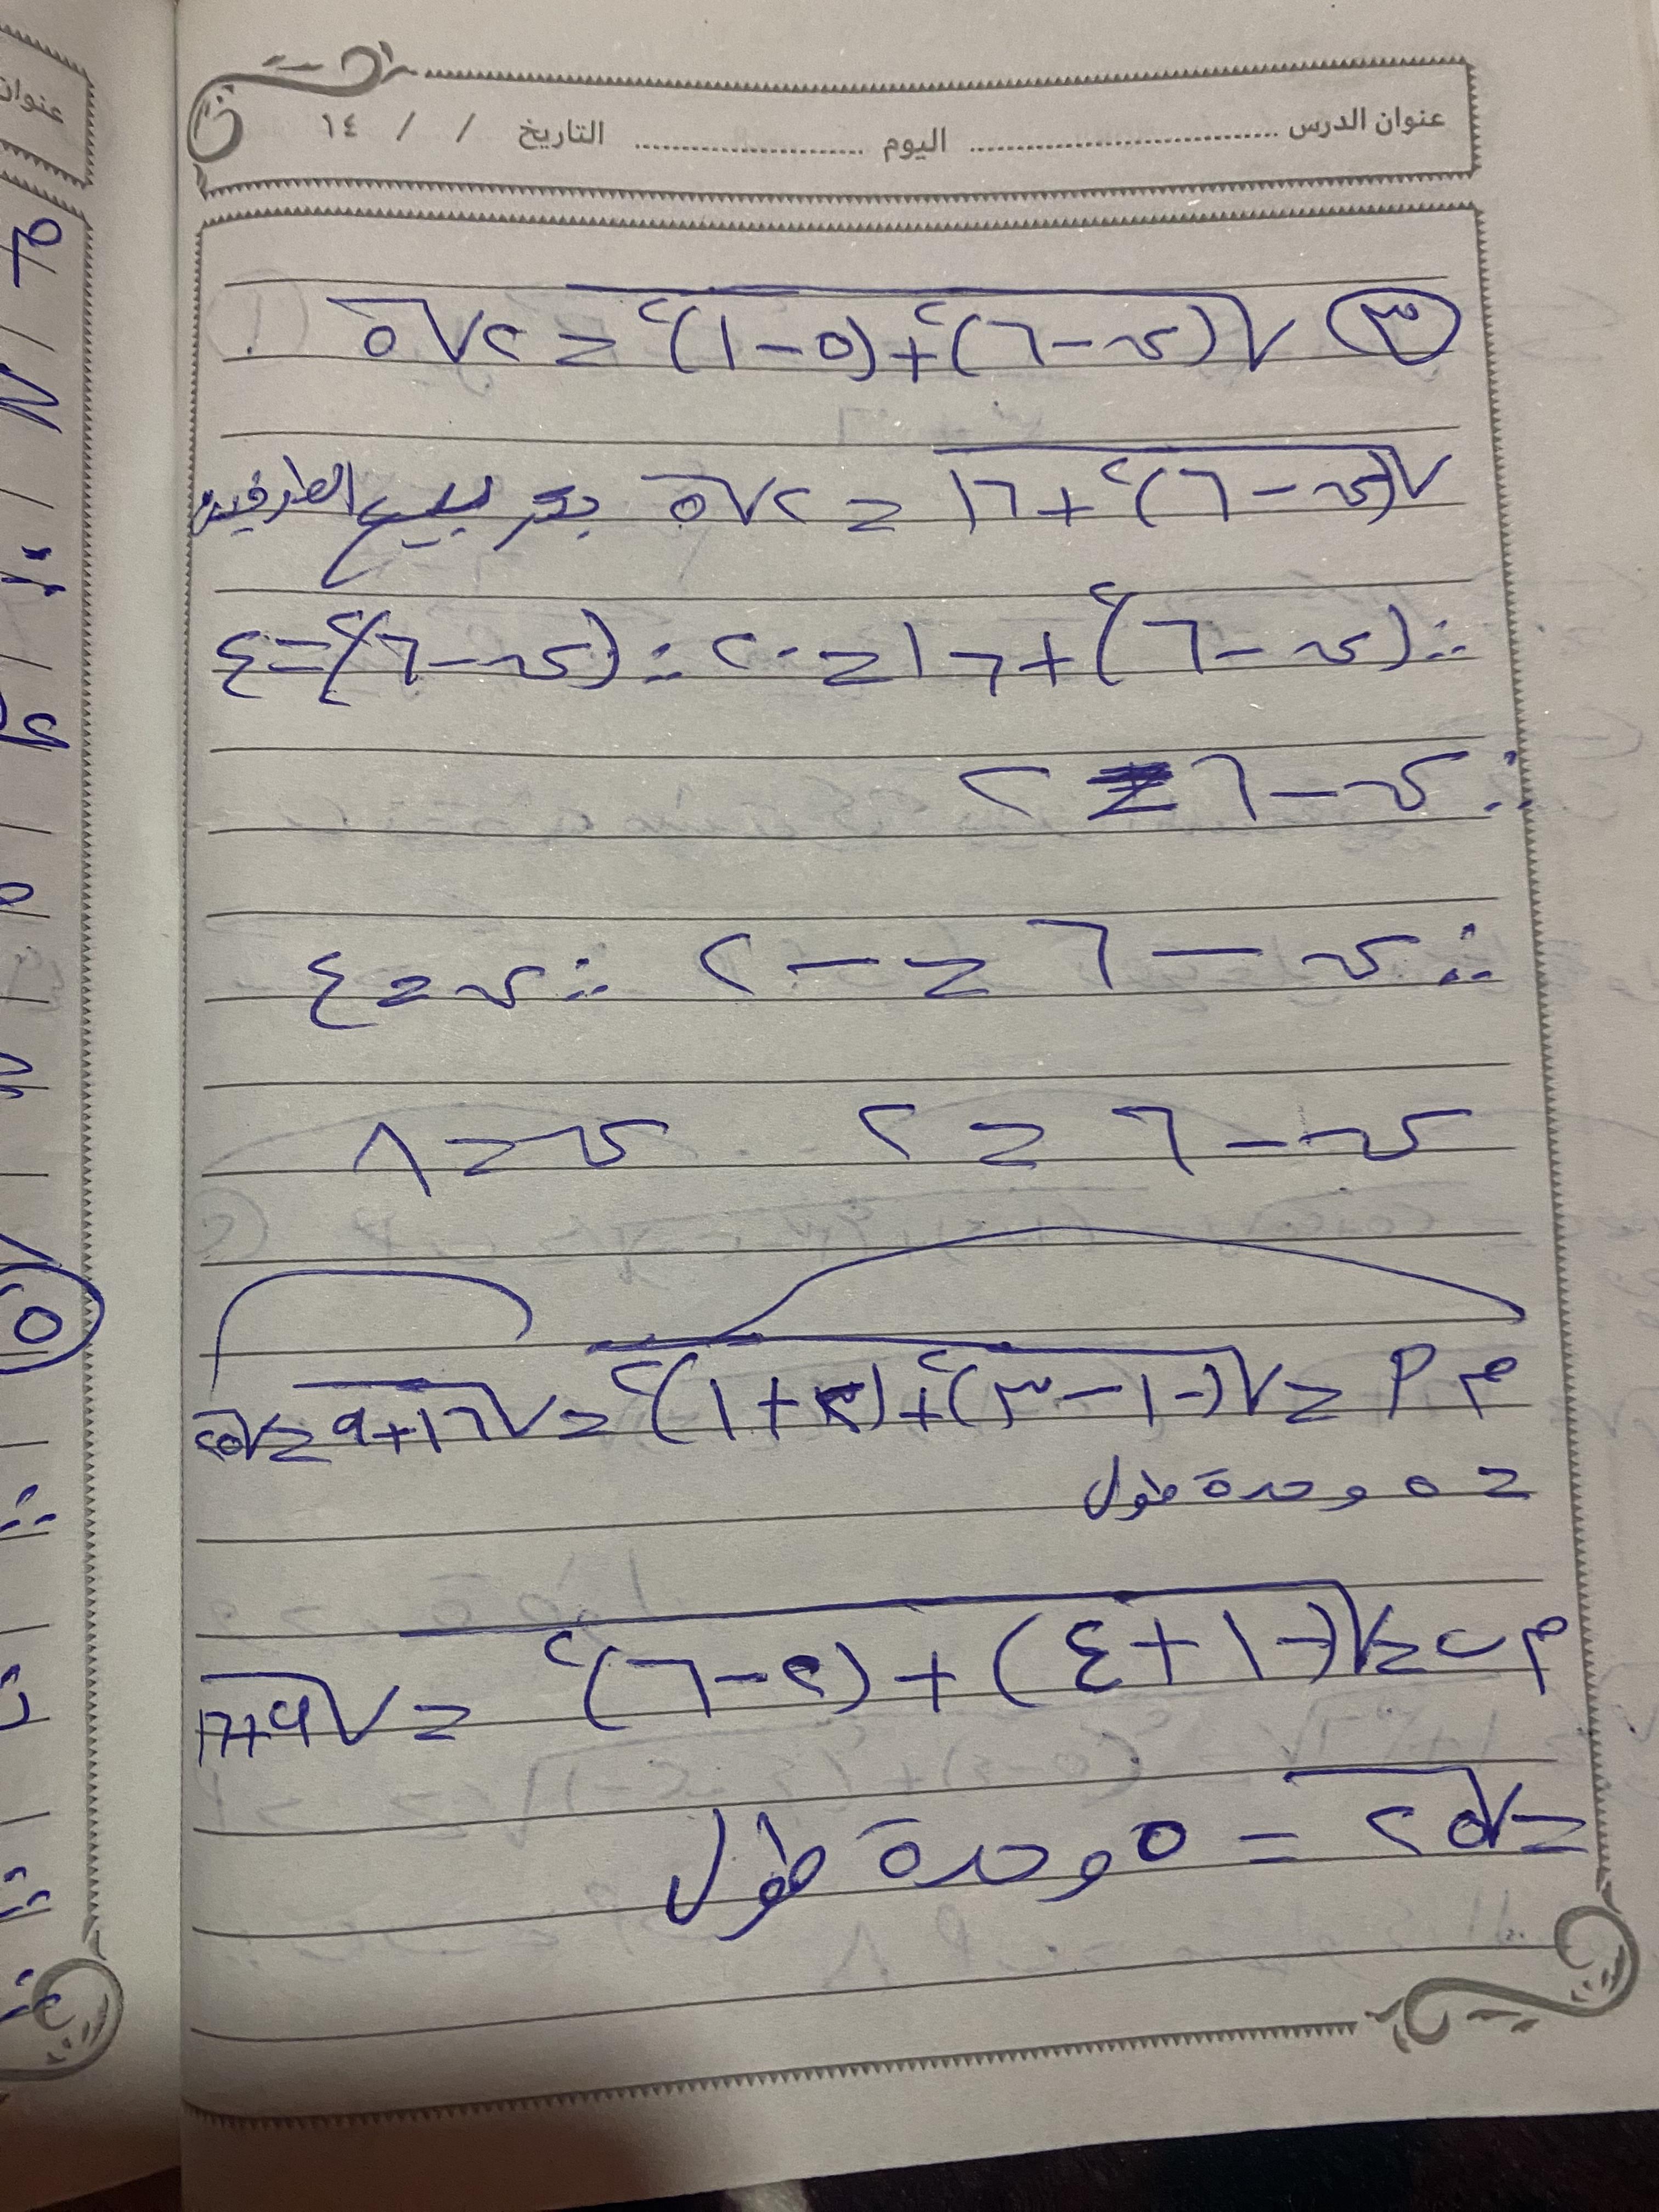 عنوان الدرس ........................ اليوم ........................ التاريخ / / ١٤
٣ √(س-٦)²+(٥-١)² = ٢√٥
√(س-٦)²+١٦ = ٢√٥ بتربيع الطرفين
∴ (س-٦)²+١٦=٢٠ ∴ (س-٦)²=٤
∴ س-٦ = ٢
∴ س-٦ = -٢ ∴ س=٤
س-٦ = ٢ س=٨
م أ = √(-١-٣)²+(٢+١)² = √١٦+٩ = √٢٥
= ٥ وحدة طول
م ب = √(-١+٤)+(٢-٦)² = √٩+١٦
= √٢٥ = ٥ وحدة طول
عنوان
٥